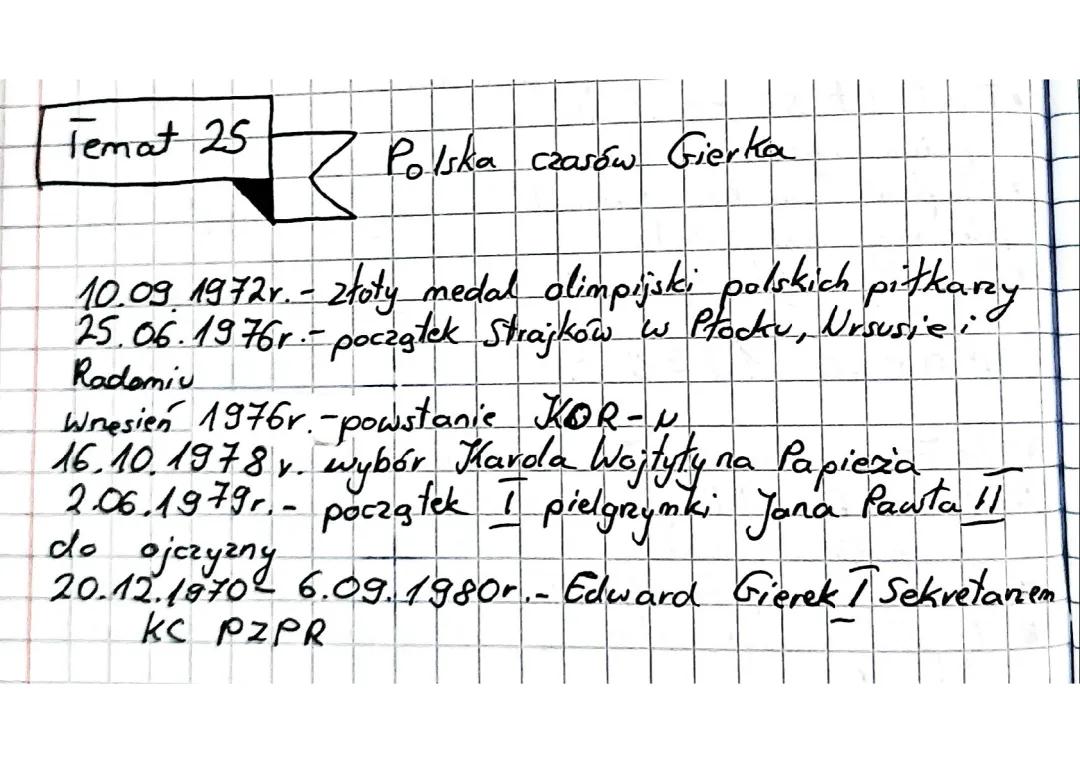 Temat 25
Polska czasów Gierka
10.09.1972r. - złoty medal olimpijski polskich piłkarzy
25.06.1976r. - początek Strajków w Płocku, Ursusie i
Radomiu
Wrzesień 1976r. - powstanie KOR-u
16.10.1978r. wybór Karola Wojtyły na Papieża
2.06.1979r. - początek I pielgrzymki Jana Pawła II
do ojczyzny
20.12.1970 - 6.09.1980r. - Edward Gierek I Sekretarzem
KC PZPR